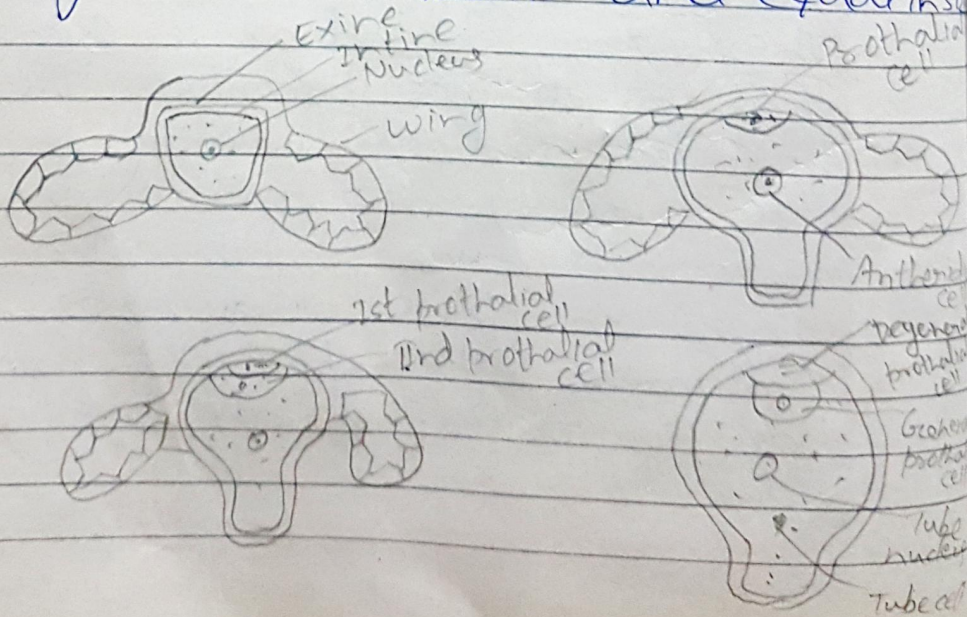 Exine
Intine
Nucleus
wing
Prothalial
cell
Antherid
ce
1st prothalial
cell
IInd prothalial
cell
Degener
prothalial
cell
prothal
cell
Tube
nuclei
Tube cel